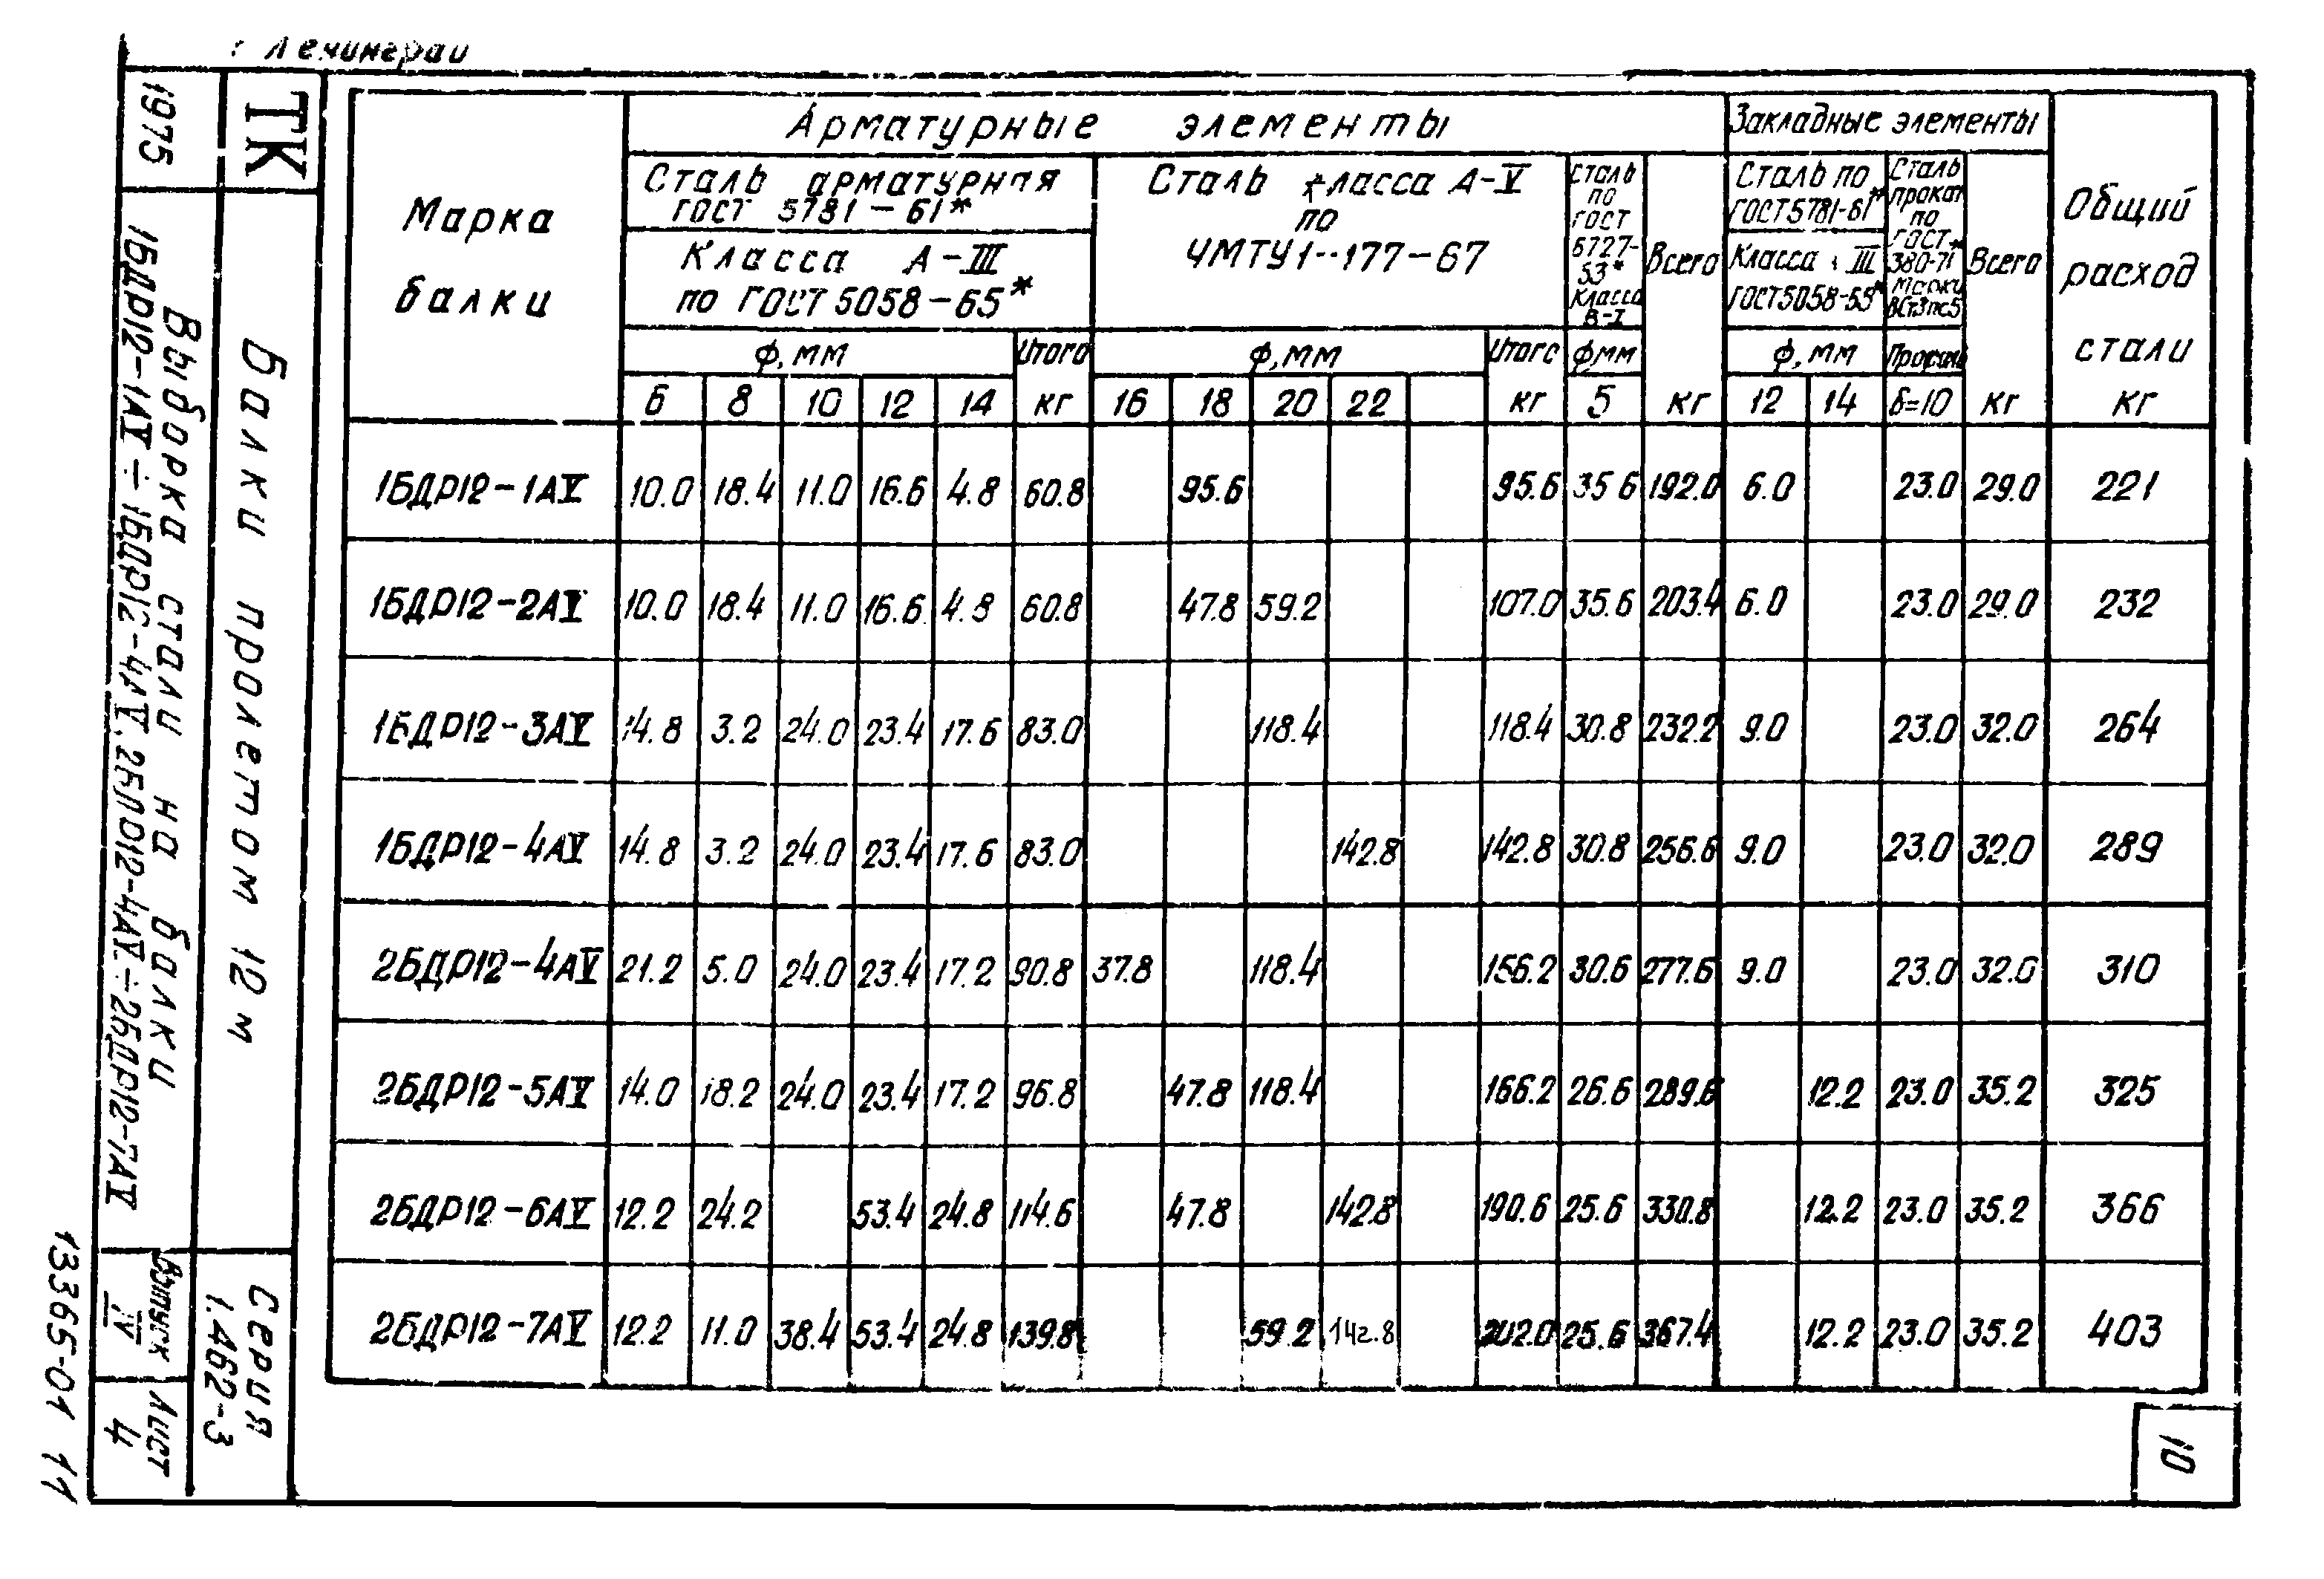 г Ленинград
ТК
1975
Балки пролетом 12 м
Выборка стали на балки
1БДР12-1АV ÷ 1БДР12-4АV, 2БДР12-4АV ÷ 2БДР12-7АV
Серия
1.462-3
Выпуск
IV
Лист
4
13365-01 11
Марка балки
Арматурные элементы
Закладные элементы
Общий расход стали кг
Сталь арматурная
ГОСТ 5781-61*
Класса А-III
по ГОСТ 5058-65*
Сталь класса А-V
по
ЧМТУ1-177-67
Сталь по ГОСТ 6727-53* класса В-I
Всего кг
Сталь по
ГОСТ 5781-61*
Класса III
ГОСТ 5058-65*
Сталь прокат по ГОСТ* 380-71 марки ВСт3пс5
Всего кг
ф, мм Итого ф, мм Итого ф мм ф, мм
6 8 10 12 14 кг 16 18 20 22 кг 5 12 14 δ=10
1БДР12-1АV 10.0 18.4 11.0 16.6 4.8 60.8 95.6 95.6 35.6 192.0 6.0 23.0 29.0 221
1БДР12-2АV 10.0 18.4 11.0 16.6 4.8 60.8 47.8 59.2 107.0 35.6 203.4 6.0 23.0 29.0 232
1БДР12-3АV 14.8 3.2 24.0 23.4 17.6 83.0 118.4 118.4 30.8 232.2 9.0 23.0 32.0 264
1БДР12-4АV 14.8 3.2 24.0 23.4 17.6 83.0 142.8 142.8 30.8 256.6 9.0 23.0 32.0 289
2БДР12-4АV 21.2 5.0 24.0 23.4 17.2 90.8 37.8 118.4 156.2 30.6 277.6 9.0 23.0 32.0 310
2БДР12-5АV 14.0 18.2 24.0 23.4 17.2 96.8 47.8 118.4 166.2 26.6 289.6 12.2 23.0 35.2 325
2БДР12-6АV 12.2 24.2 53.4 24.8 114.6 47.8 142.8 190.6 25.6 330.8 12.2 23.0 35.2 366
2БДР12-7АV 12.2 11.0 38.4 53.4 24.8 139.8 59.2 142.8 202.0 25.6 367.4 12.2 23.0 35.2 403
10